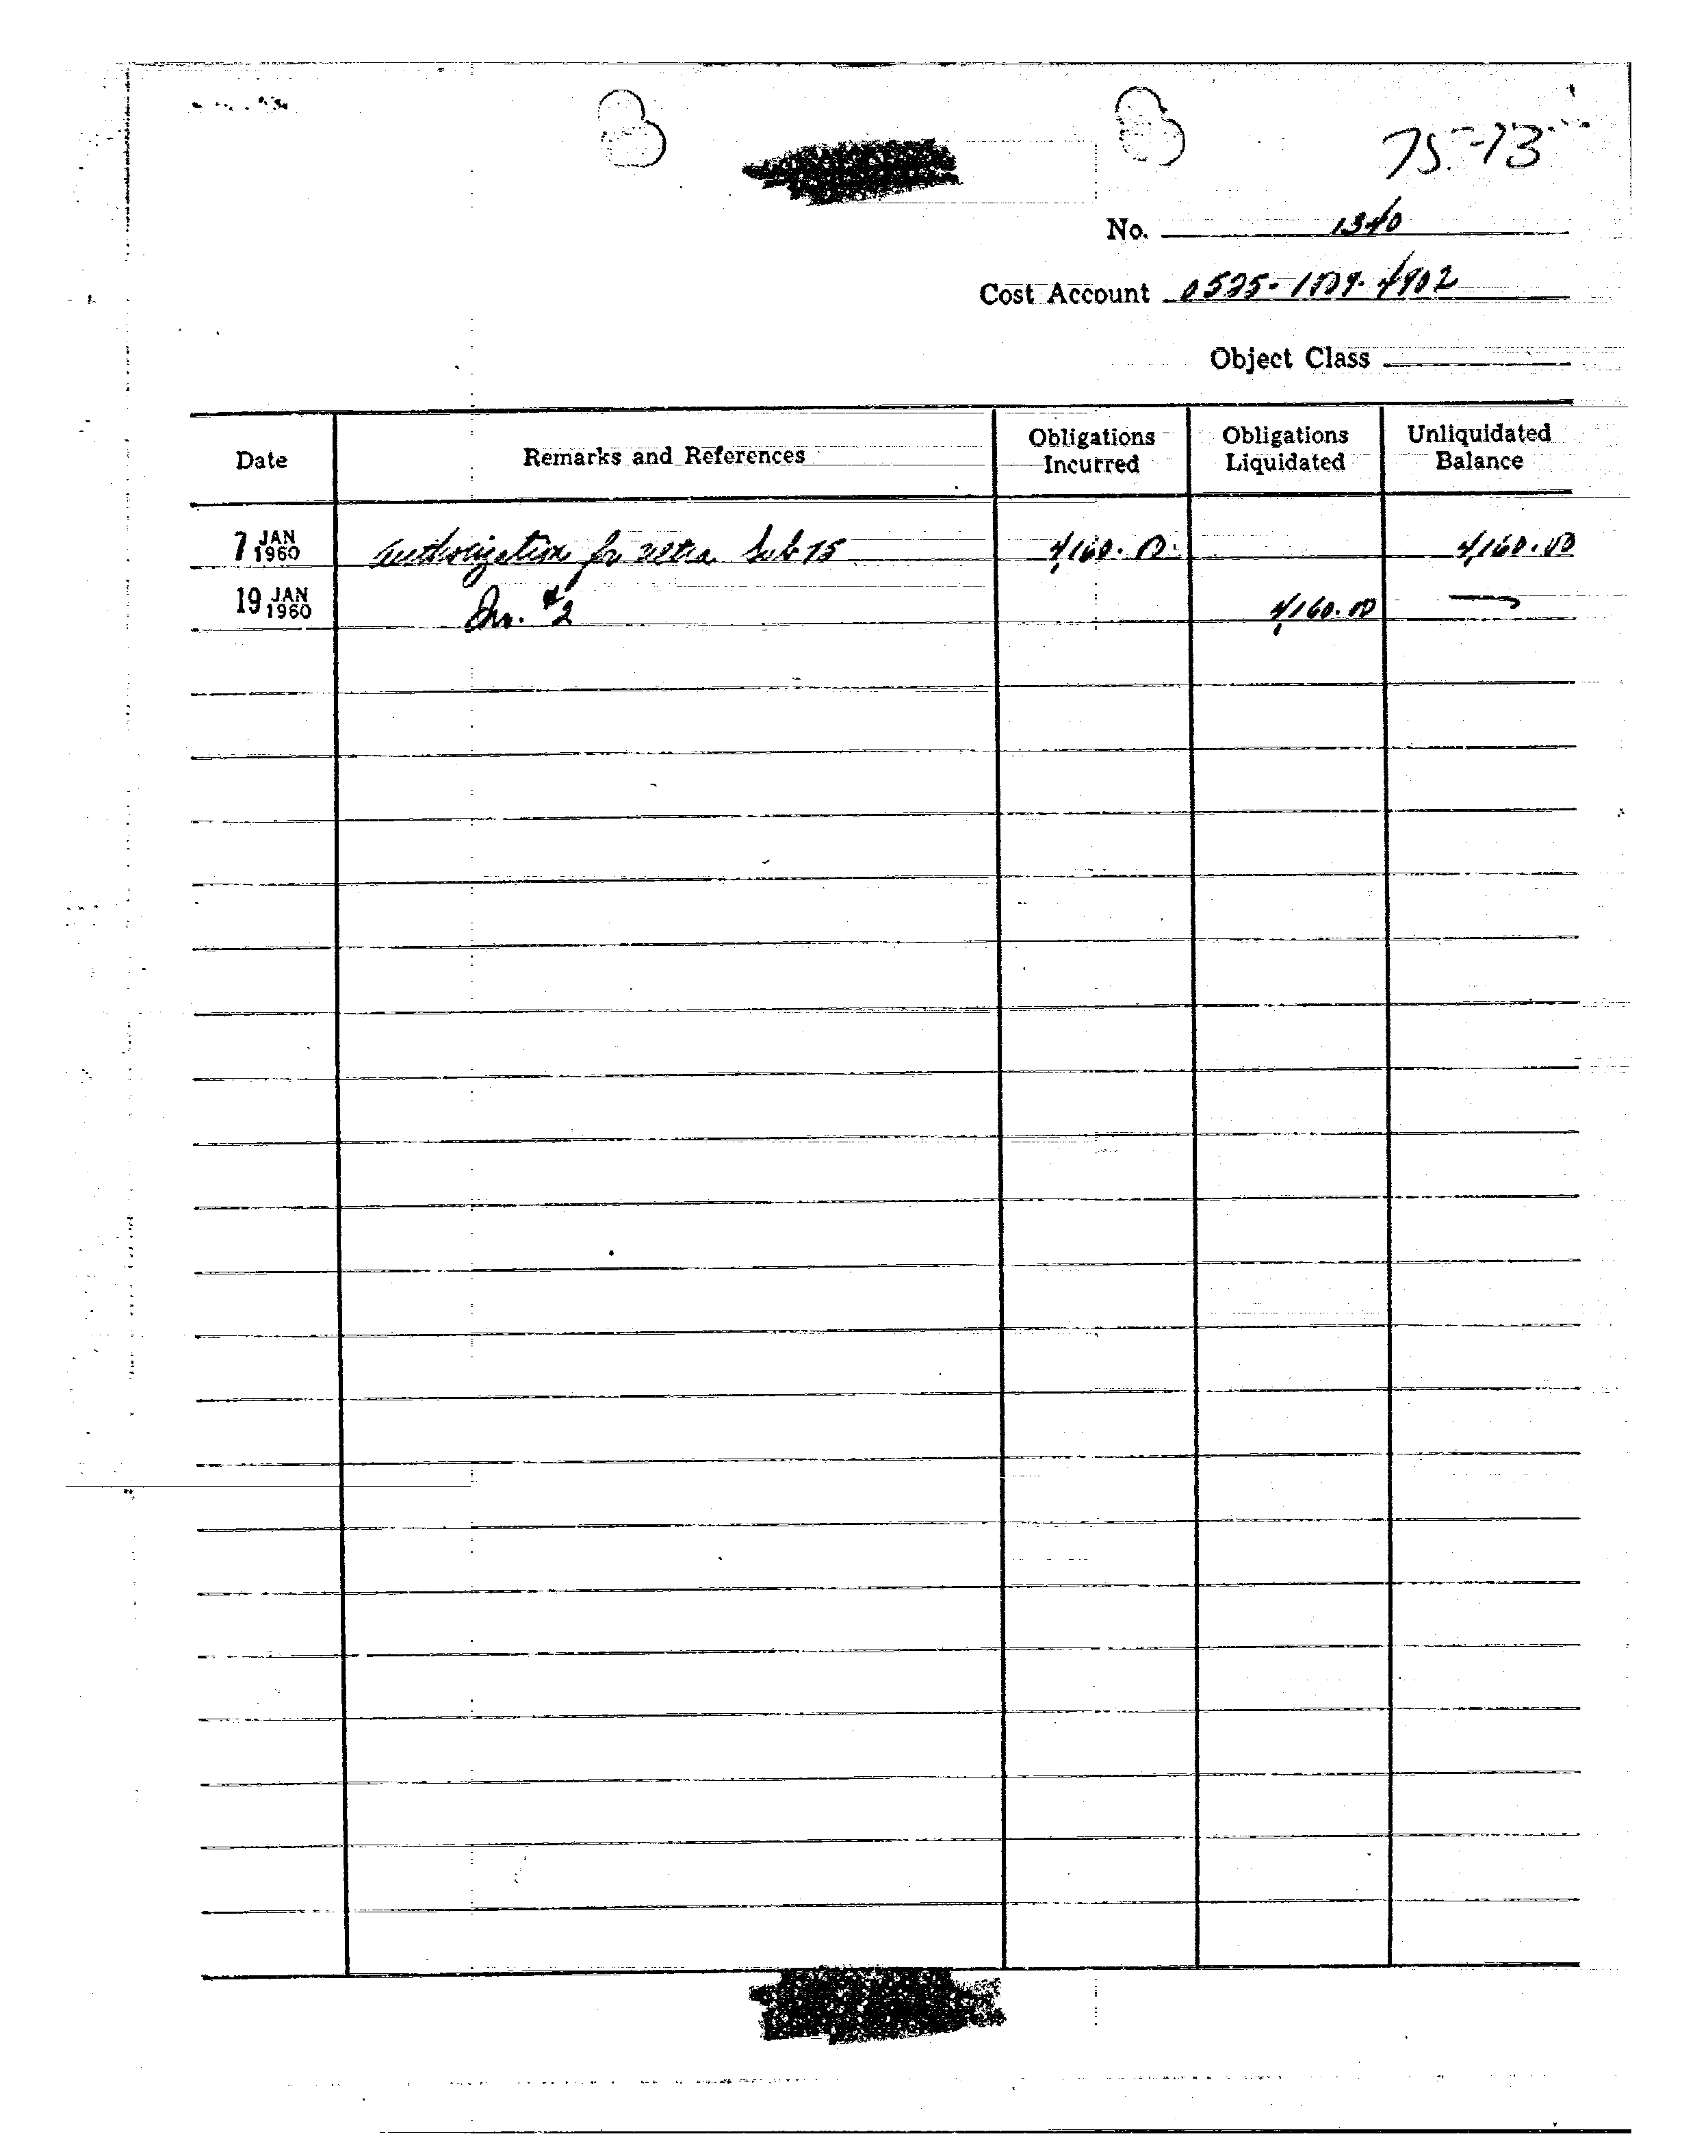 75-13
No. 1340
Cost Account 0525-1009-4902
Object Class
Date Remarks and References Obligations Incurred Obligations Liquidated Unliquidated Balance
7 JAN 1960 Authorization for ultra Sub 75 4,160.00 4,160.00
19 JAN 1960 Inv. #2 4,160.00 —